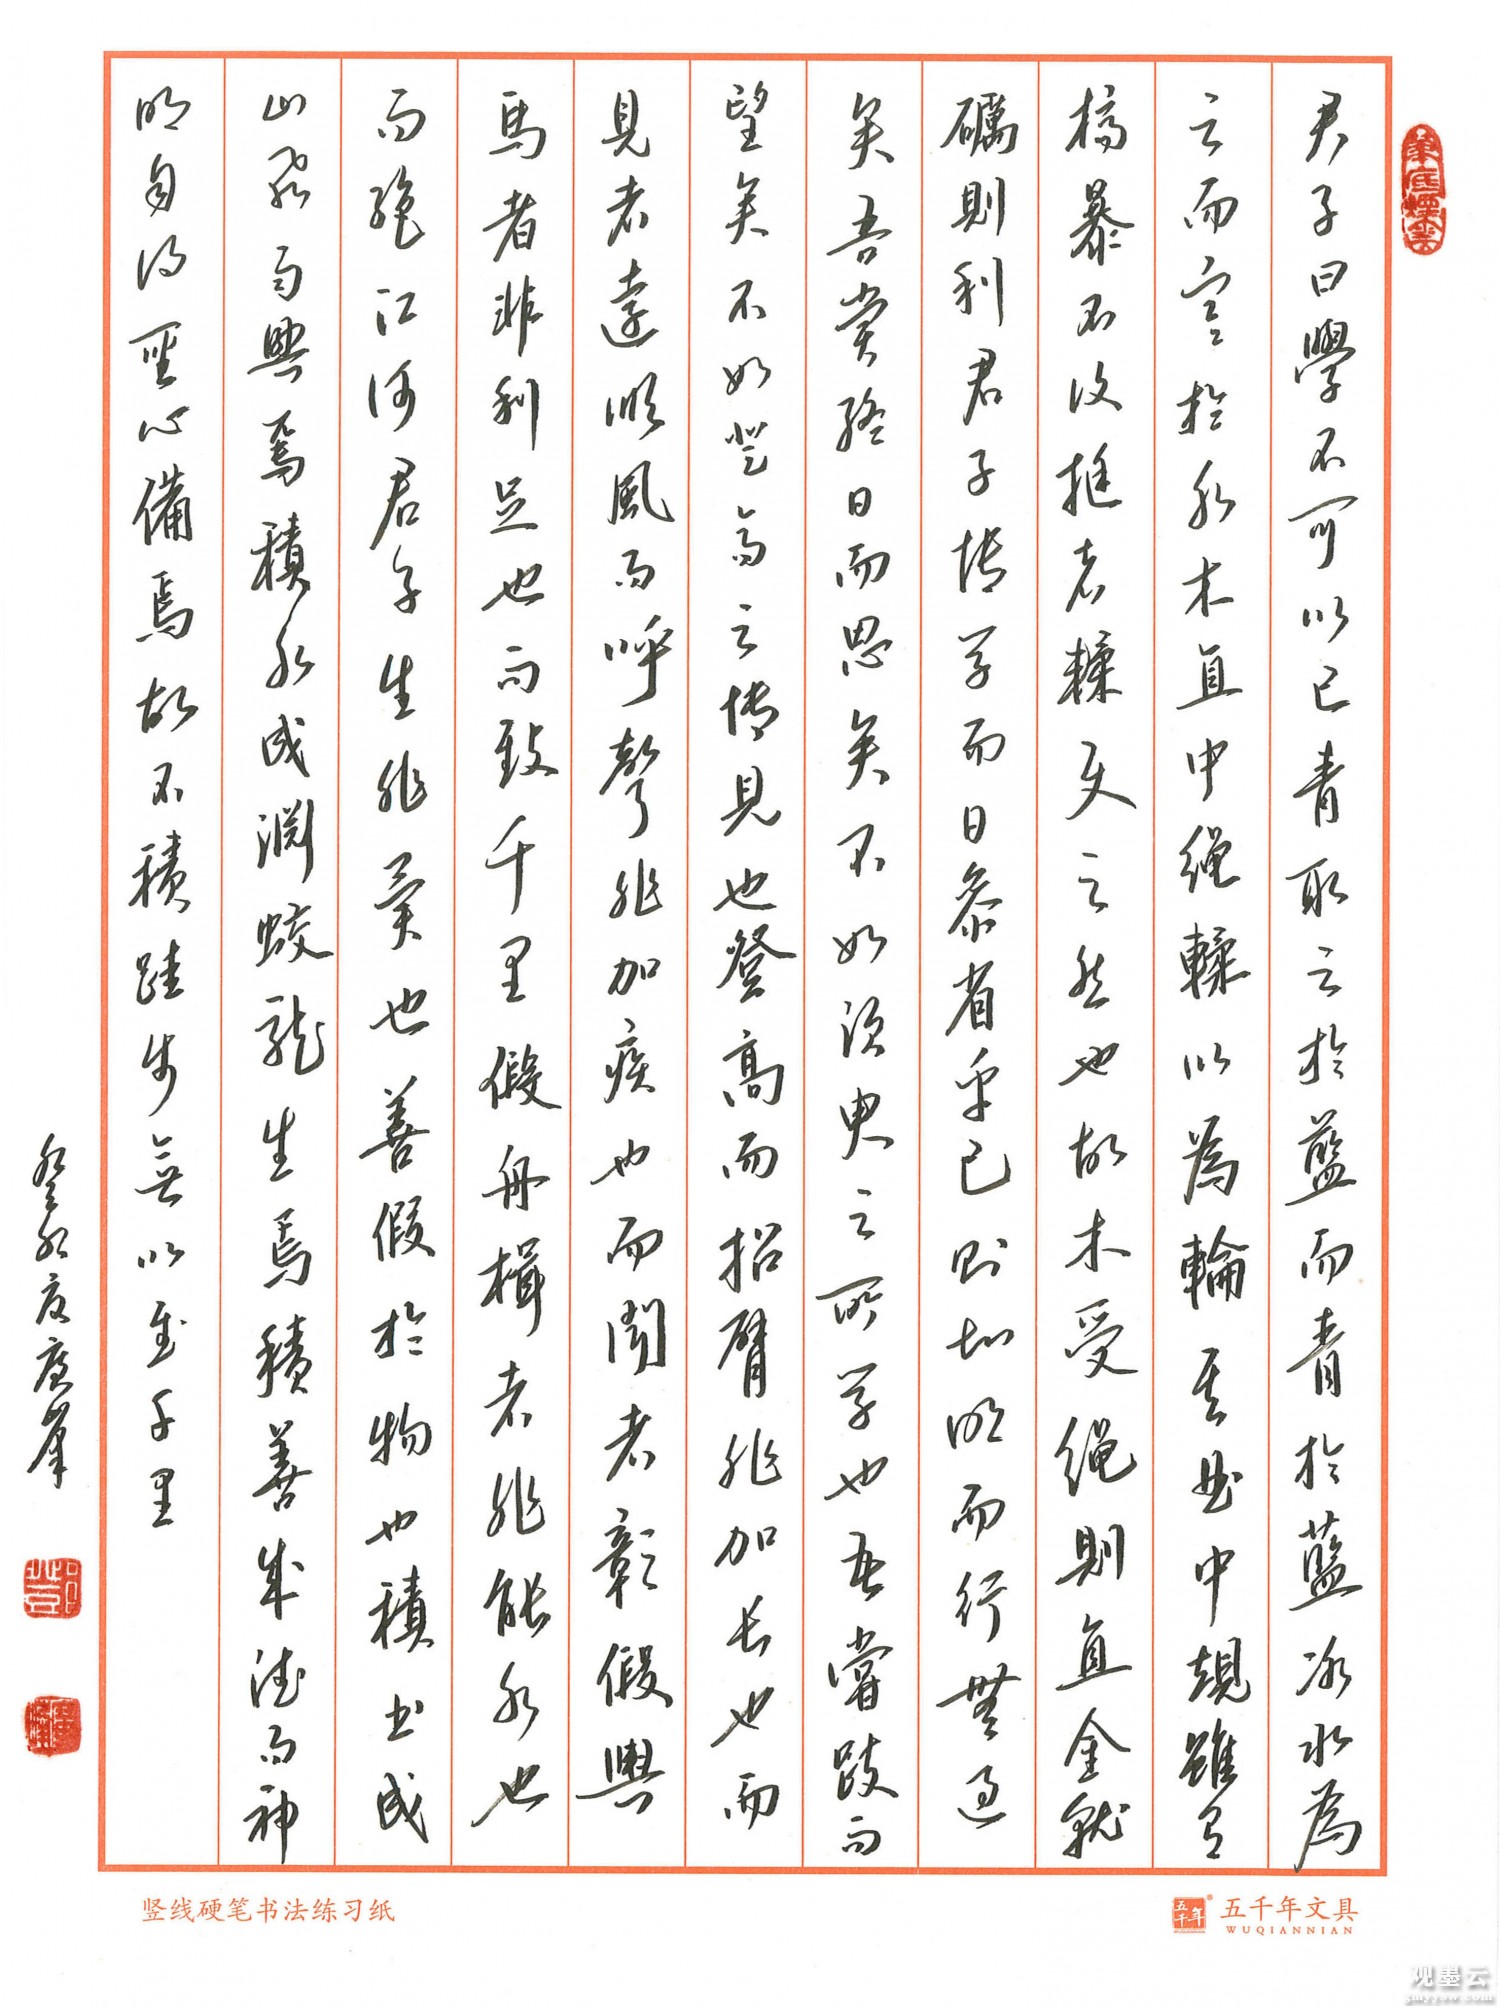 君子曰學不可以已青取之於藍而青於藍冰水為
之而寒於水木直中繩輮以為輪其曲中規雖有
槁暴不復挺者輮使之然也故木受繩則直金就
礪則利君子博学而日參省乎己則知明而行無過
矣吾嘗終日而思矣不如須臾之所学也吾嘗跂而
望矣不如登高之博見也登高而招臂非加長也而
見者遠順風而呼聲非加疾也而聞者彰假輿
馬者非利足也而致千里假舟楫者非能水也
而絕江河君子生非異也善假於物也積土成
山風雨興焉積水成淵蛟龍生焉積善成德而神
明自得聖心備焉故不積跬步無以至千里
竖线硬笔书法练习纸
五千年
五千年文具
WUQIANNIAN
观墨云